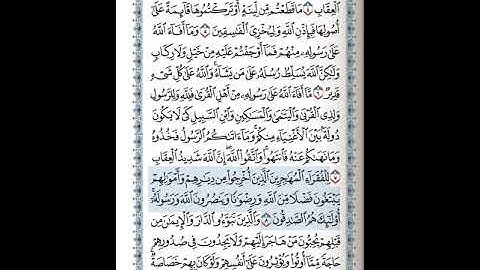 ٱلْعِقَابِ ٤ مَا قَطَعْتُم مِّن لِّينَةٍ أَوْ تَرَكْتُمُوهَا قَآئِمَةً عَلَىٰٓ
أُصُولِهَا فَبِإِذْنِ ٱللَّهِ وَلِيُخْزِىَ ٱلْفَٰسِقِينَ ٥ وَمَآ أَفَآءَ ٱللَّهُ
عَلَىٰ رَسُولِهِۦ مِنْهُمْ فَمَآ أَوْجَفْتُمْ عَلَيْهِ مِنْ خَيْلٍ وَلَا رِكَابٍ
وَلَٰكِنَّ ٱللَّهَ يُسَلِّطُ رُسُلَهُۥ عَلَىٰ مَن يَشَآءُ ۚ وَٱللَّهُ عَلَىٰ كُلِّ شَىْءٍ
قَدِيرٌ ٦ مَّآ أَفَآءَ ٱللَّهُ عَلَىٰ رَسُولِهِۦ مِنْ أَهْلِ ٱلْقُرَىٰ فَلِلَّهِ وَلِلرَّسُولِ
وَلِذِى ٱلْقُرْبَىٰ وَٱلْيَتَٰمَىٰ وَٱلْمَسَٰكِينِ وَٱبْنِ ٱلسَّبِيلِ كَىْ لَا يَكُونَ
دُولَةًۢ بَيْنَ ٱلْأَغْنِيَآءِ مِنكُمْ ۚ وَمَآ ءَاتَىٰكُمُ ٱلرَّسُولُ فَخُذُوهُ
وَمَا نَهَىٰكُمْ عَنْهُ فَٱنتَهُوا۟ ۚ وَٱتَّقُوا۟ ٱللَّهَ ۖ إِنَّ ٱللَّهَ شَدِيدُ ٱلْعِقَابِ
٧ لِلْفُقَرَآءِ ٱلْمُهَٰجِرِينَ ٱلَّذِينَ أُخْرِجُوا۟ مِن دِيَٰرِهِمْ وَأَمْوَٰلِهِمْ
يَبْتَغُونَ فَضْلًا مِّنَ ٱللَّهِ وَرِضْوَٰنًا وَيَنصُرُونَ ٱللَّهَ وَرَسُولَهُۥٓ ۚ
أُو۟لَٰٓئِكَ هُمُ ٱلصَّٰدِقُونَ ٨ وَٱلَّذِينَ تَبَوَّءُو ٱلدَّارَ وَٱلْإِيمَٰنَ مِن
قَبْلِهِمْ يُحِبُّونَ مَنْ هَاجَرَ إِلَيْهِمْ وَلَا يَجِدُونَ فِى صُدُورِهِمْ
حَاجَةً مِّمَّآ أُوتُوا۟ وَيُؤْثِرُونَ عَلَىٰٓ أَنفُسِهِمْ وَلَوْ كَانَ بِهِمْ خَصَاصَةٌ